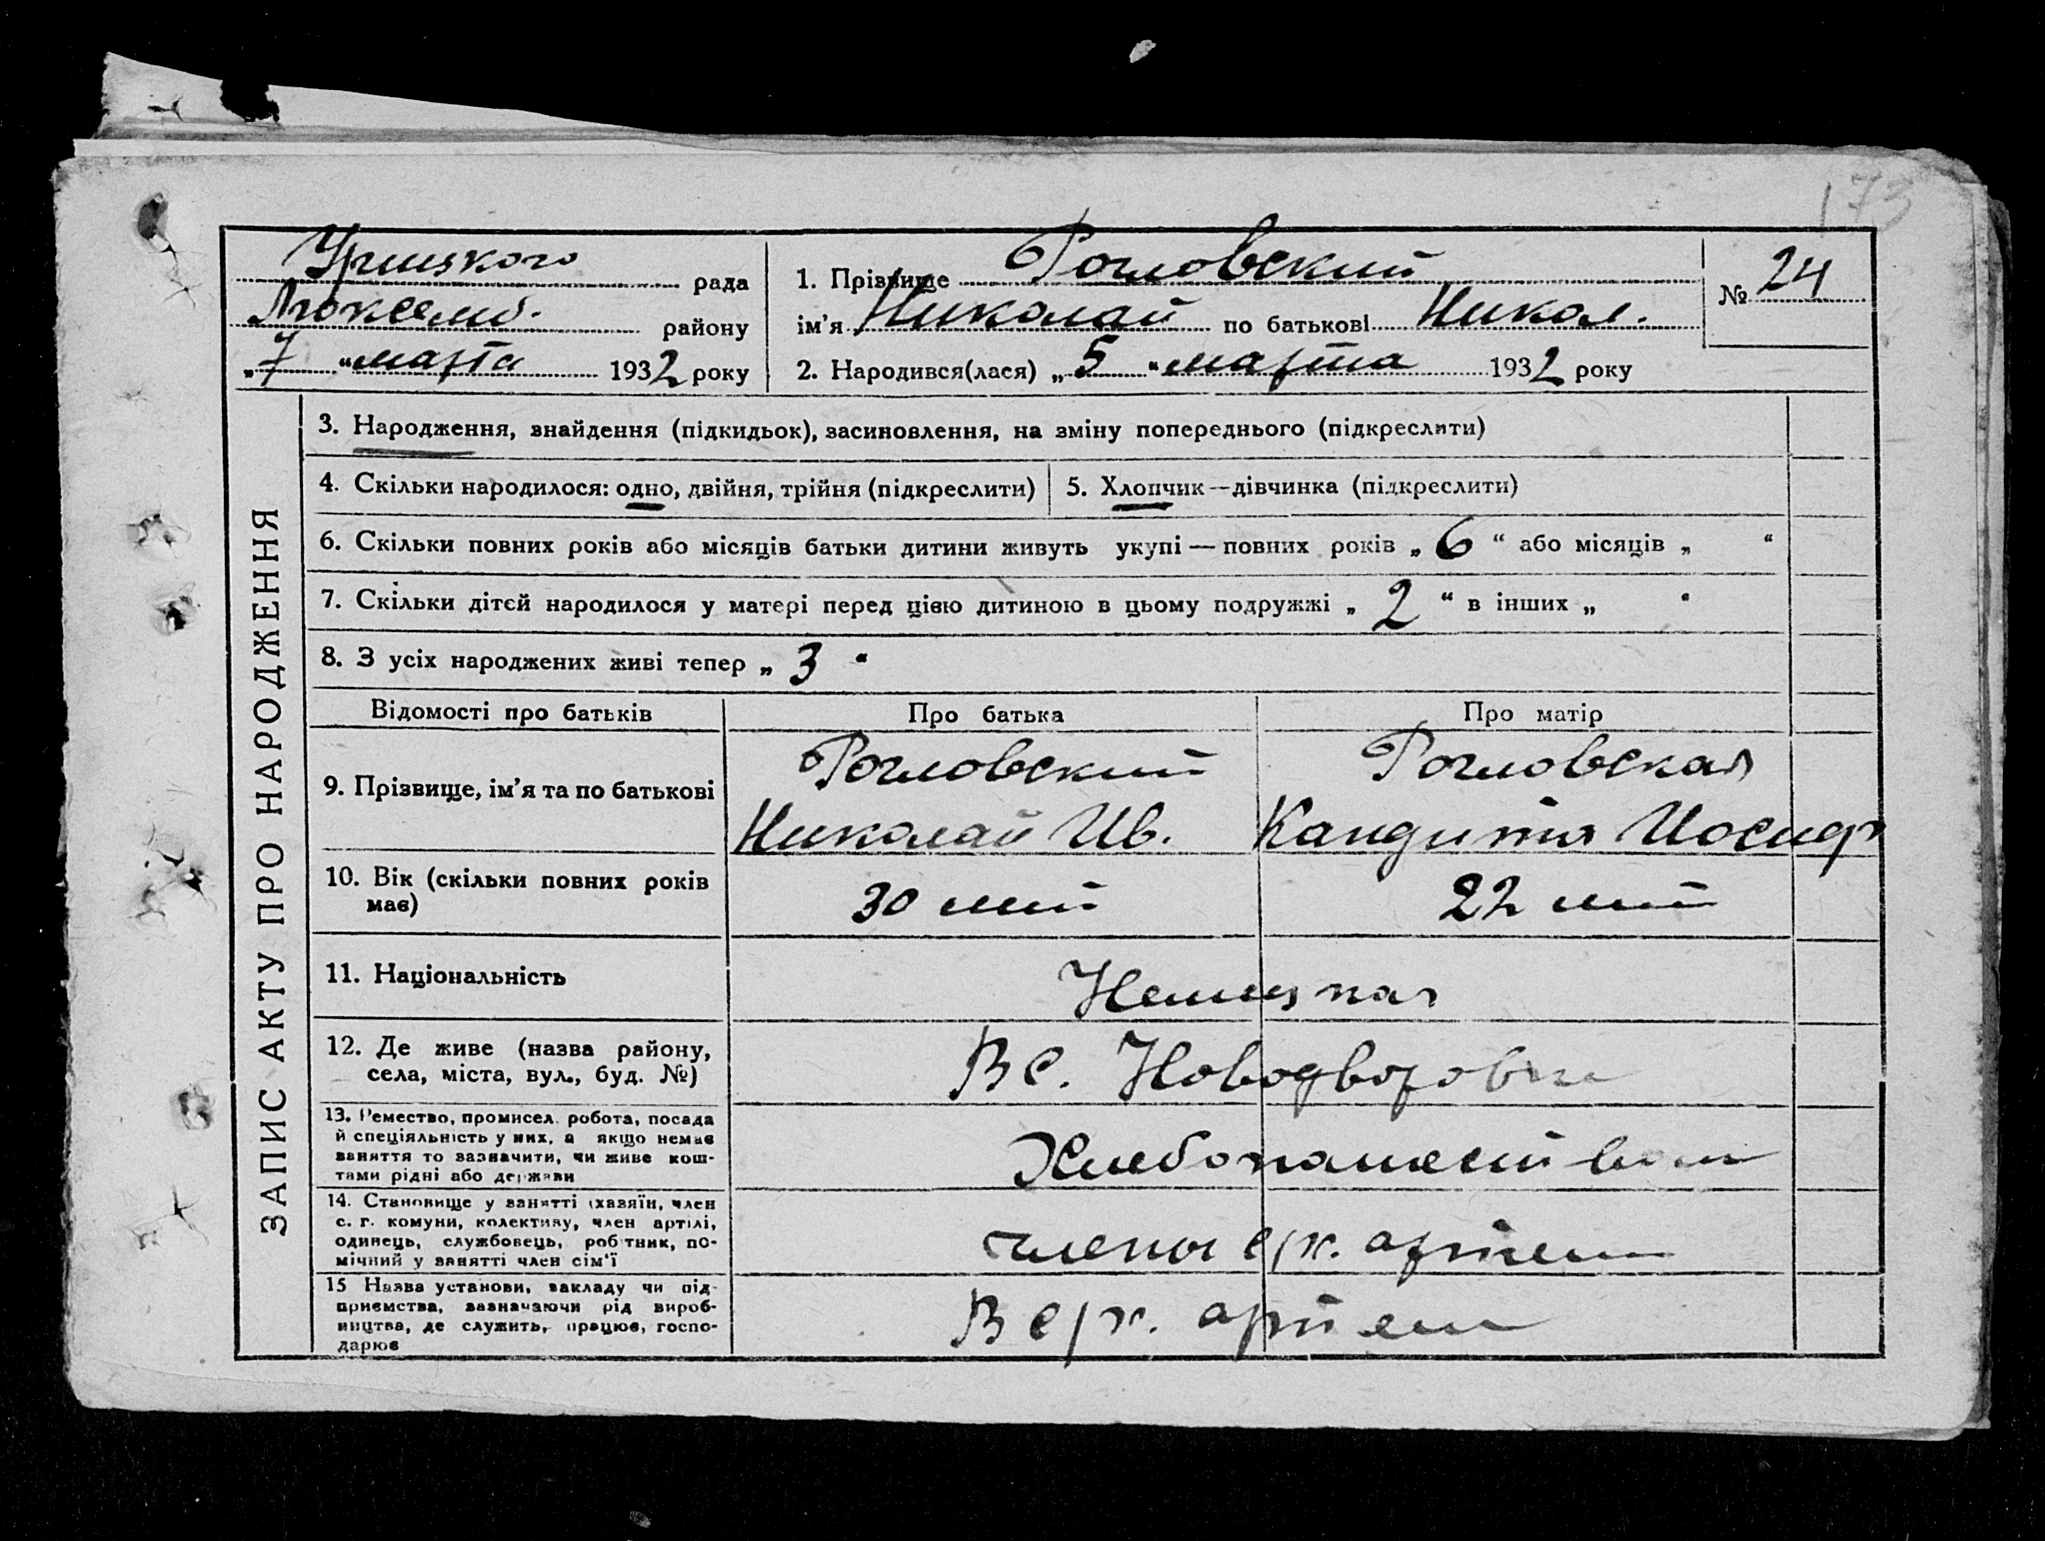 173
Урицкого рада
Люксемб. району
„7 “ марта 1932 року
1. Прізвище Рогловский
ім’я Николай по батькові Никол.
№ 24
2. Народився(лася) „ 5 “ марта 1932 року
ЗАПИС АКТУ ПРО НАРОДЖЕННЯ
3. Народження, знайдення (підкидьок), засиновлення, на зміну попереднього (підкреслити)
4. Скільки народилося: одно, двійня, трійня (підкреслити)
5. Хлопчик—дівчинка (підкреслити)
6. Скільки повних років або місяців батьки дитини живуть укупі — повних років „ 6 “ або місяців „ “
7. Скільки дітей народилося у матері перед цією дитиною в цьому подружжі „ 2 “ в інших „ “
8. З усіх народжених живі тепер „ 3 “
Відомості про батьків
Про батька
Про матір
9. Прізвище, ім’я та по батькові
Рогловский
Николай Ив.
Рогловская
Кандитя Иосиф
10. Вік (скільки повних років
має)
30 лет
22 лет
11. Національність
Немецкая
12. Де живе (назва району,
села, міста, вул., буд. №)
В с. Новодворовке
13. Ремество, промисел. робота, посада
й спеціяльність у них, а якщо немає
заняття то зазначити, чи живе кош-
тами рідні або держави
Хлебопашеством
14. Становище у занятті (хазяїн, член
с. г. комуни, колективу, член артілі,
одинець, службовець, робітник, по-
мічний у занятті член сім’ї
члены с/х. артели
15 Назва установи, закладу чи під-
приємства, зазначаючи рід вироб-
ництва, де служить, працює, госпо-
дарює
В с/х. артели